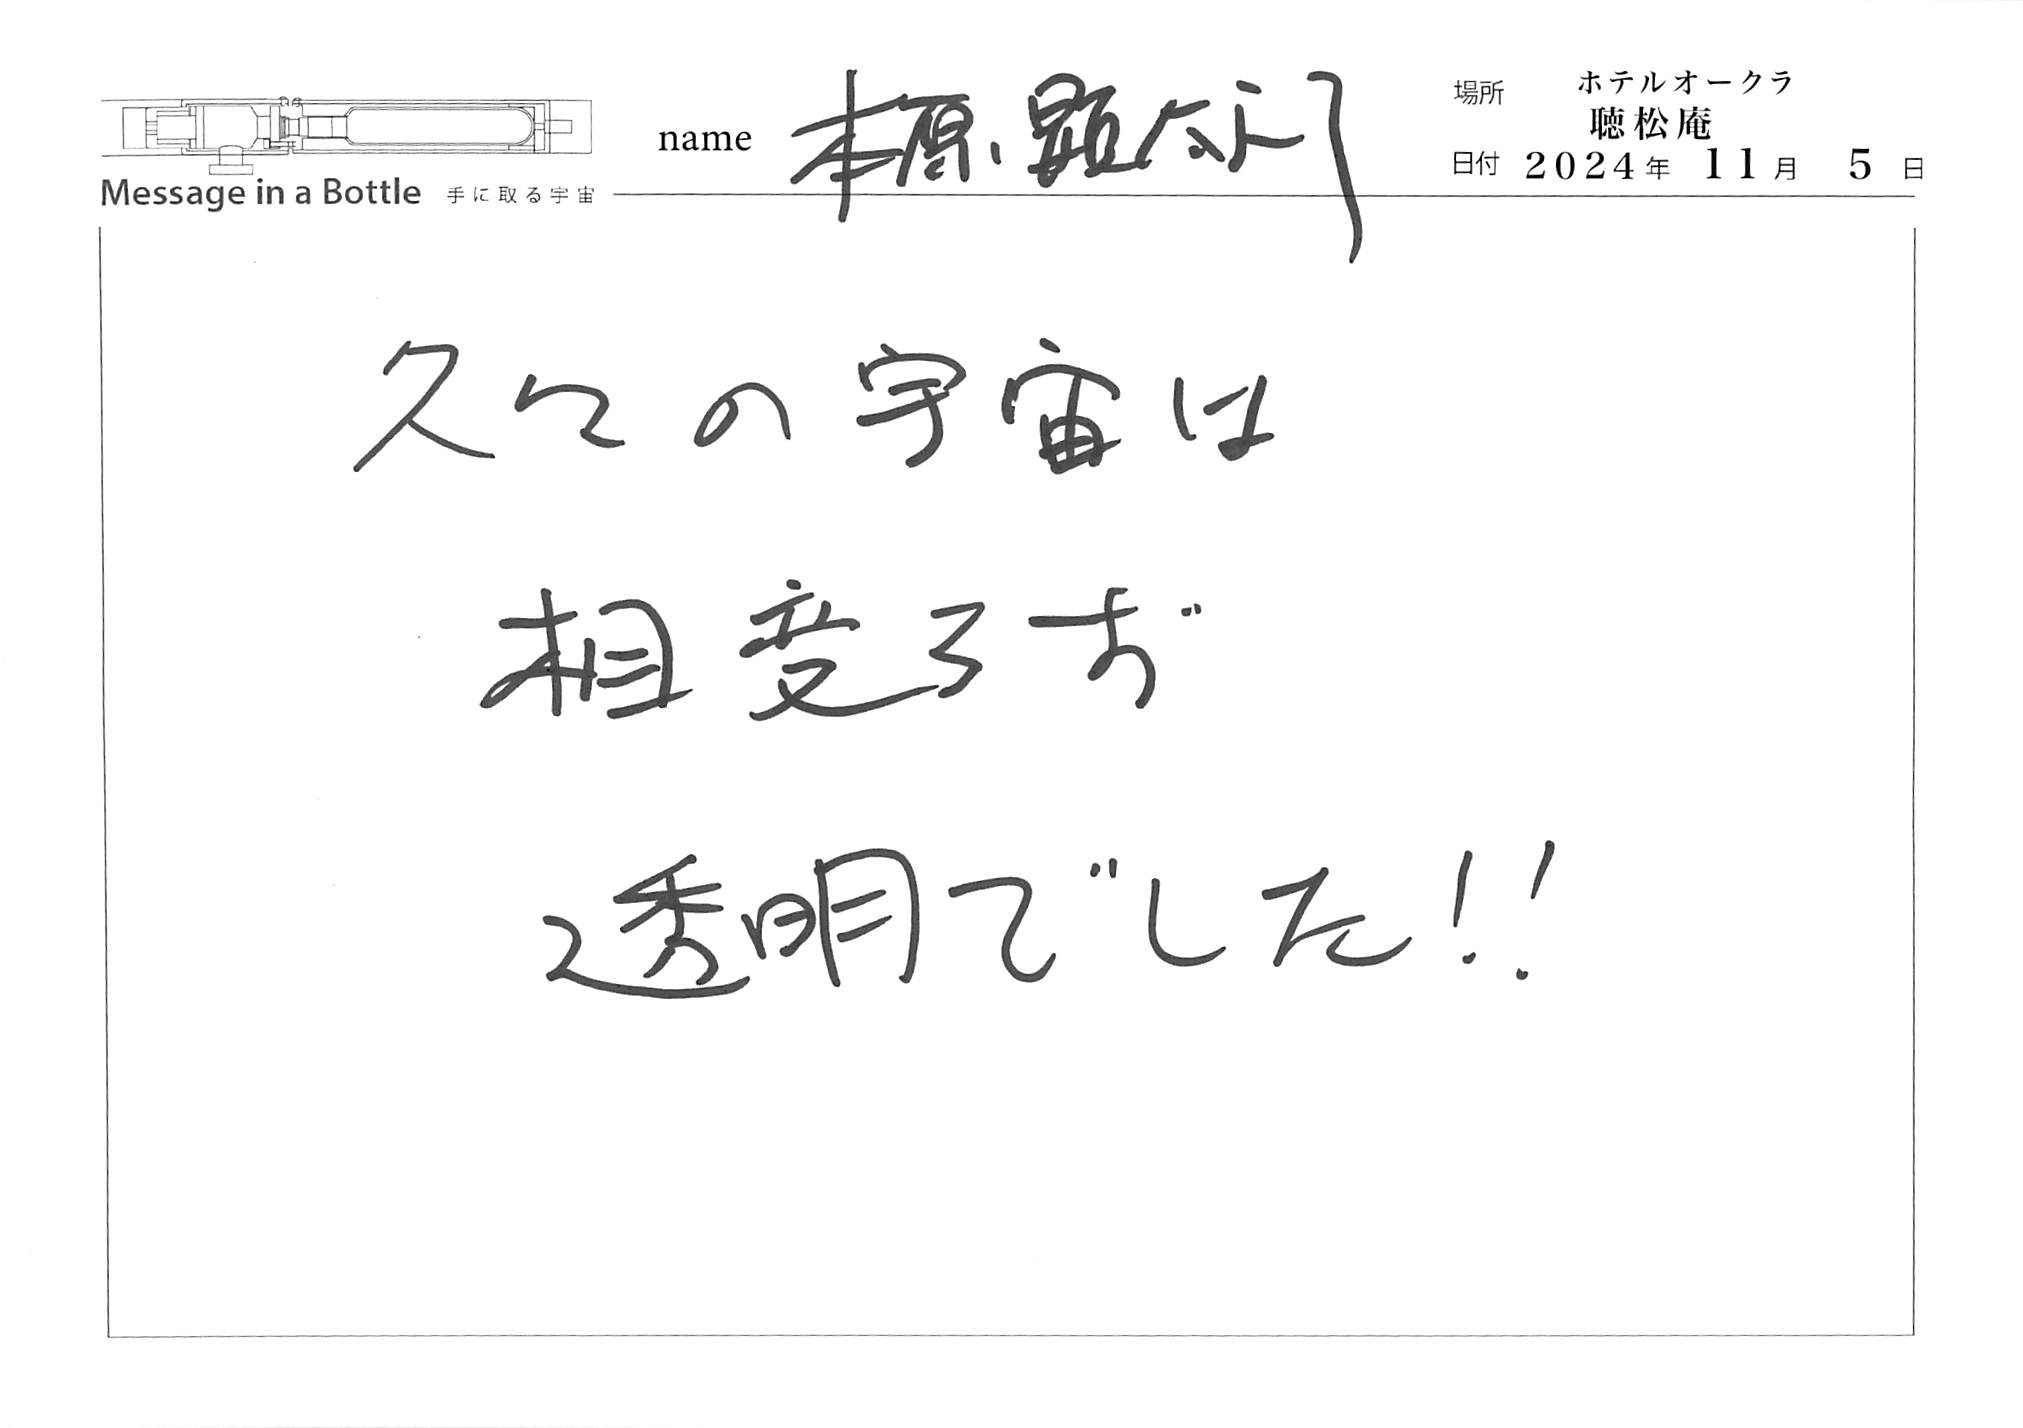 name 榎原 顕太郎
場所 ホテルオークラ
聴松庵
日付 2024年 11月 5日
Message in a Bottle 手に取る宇宙
久々の宇宙は
相変らず
透明でした!!